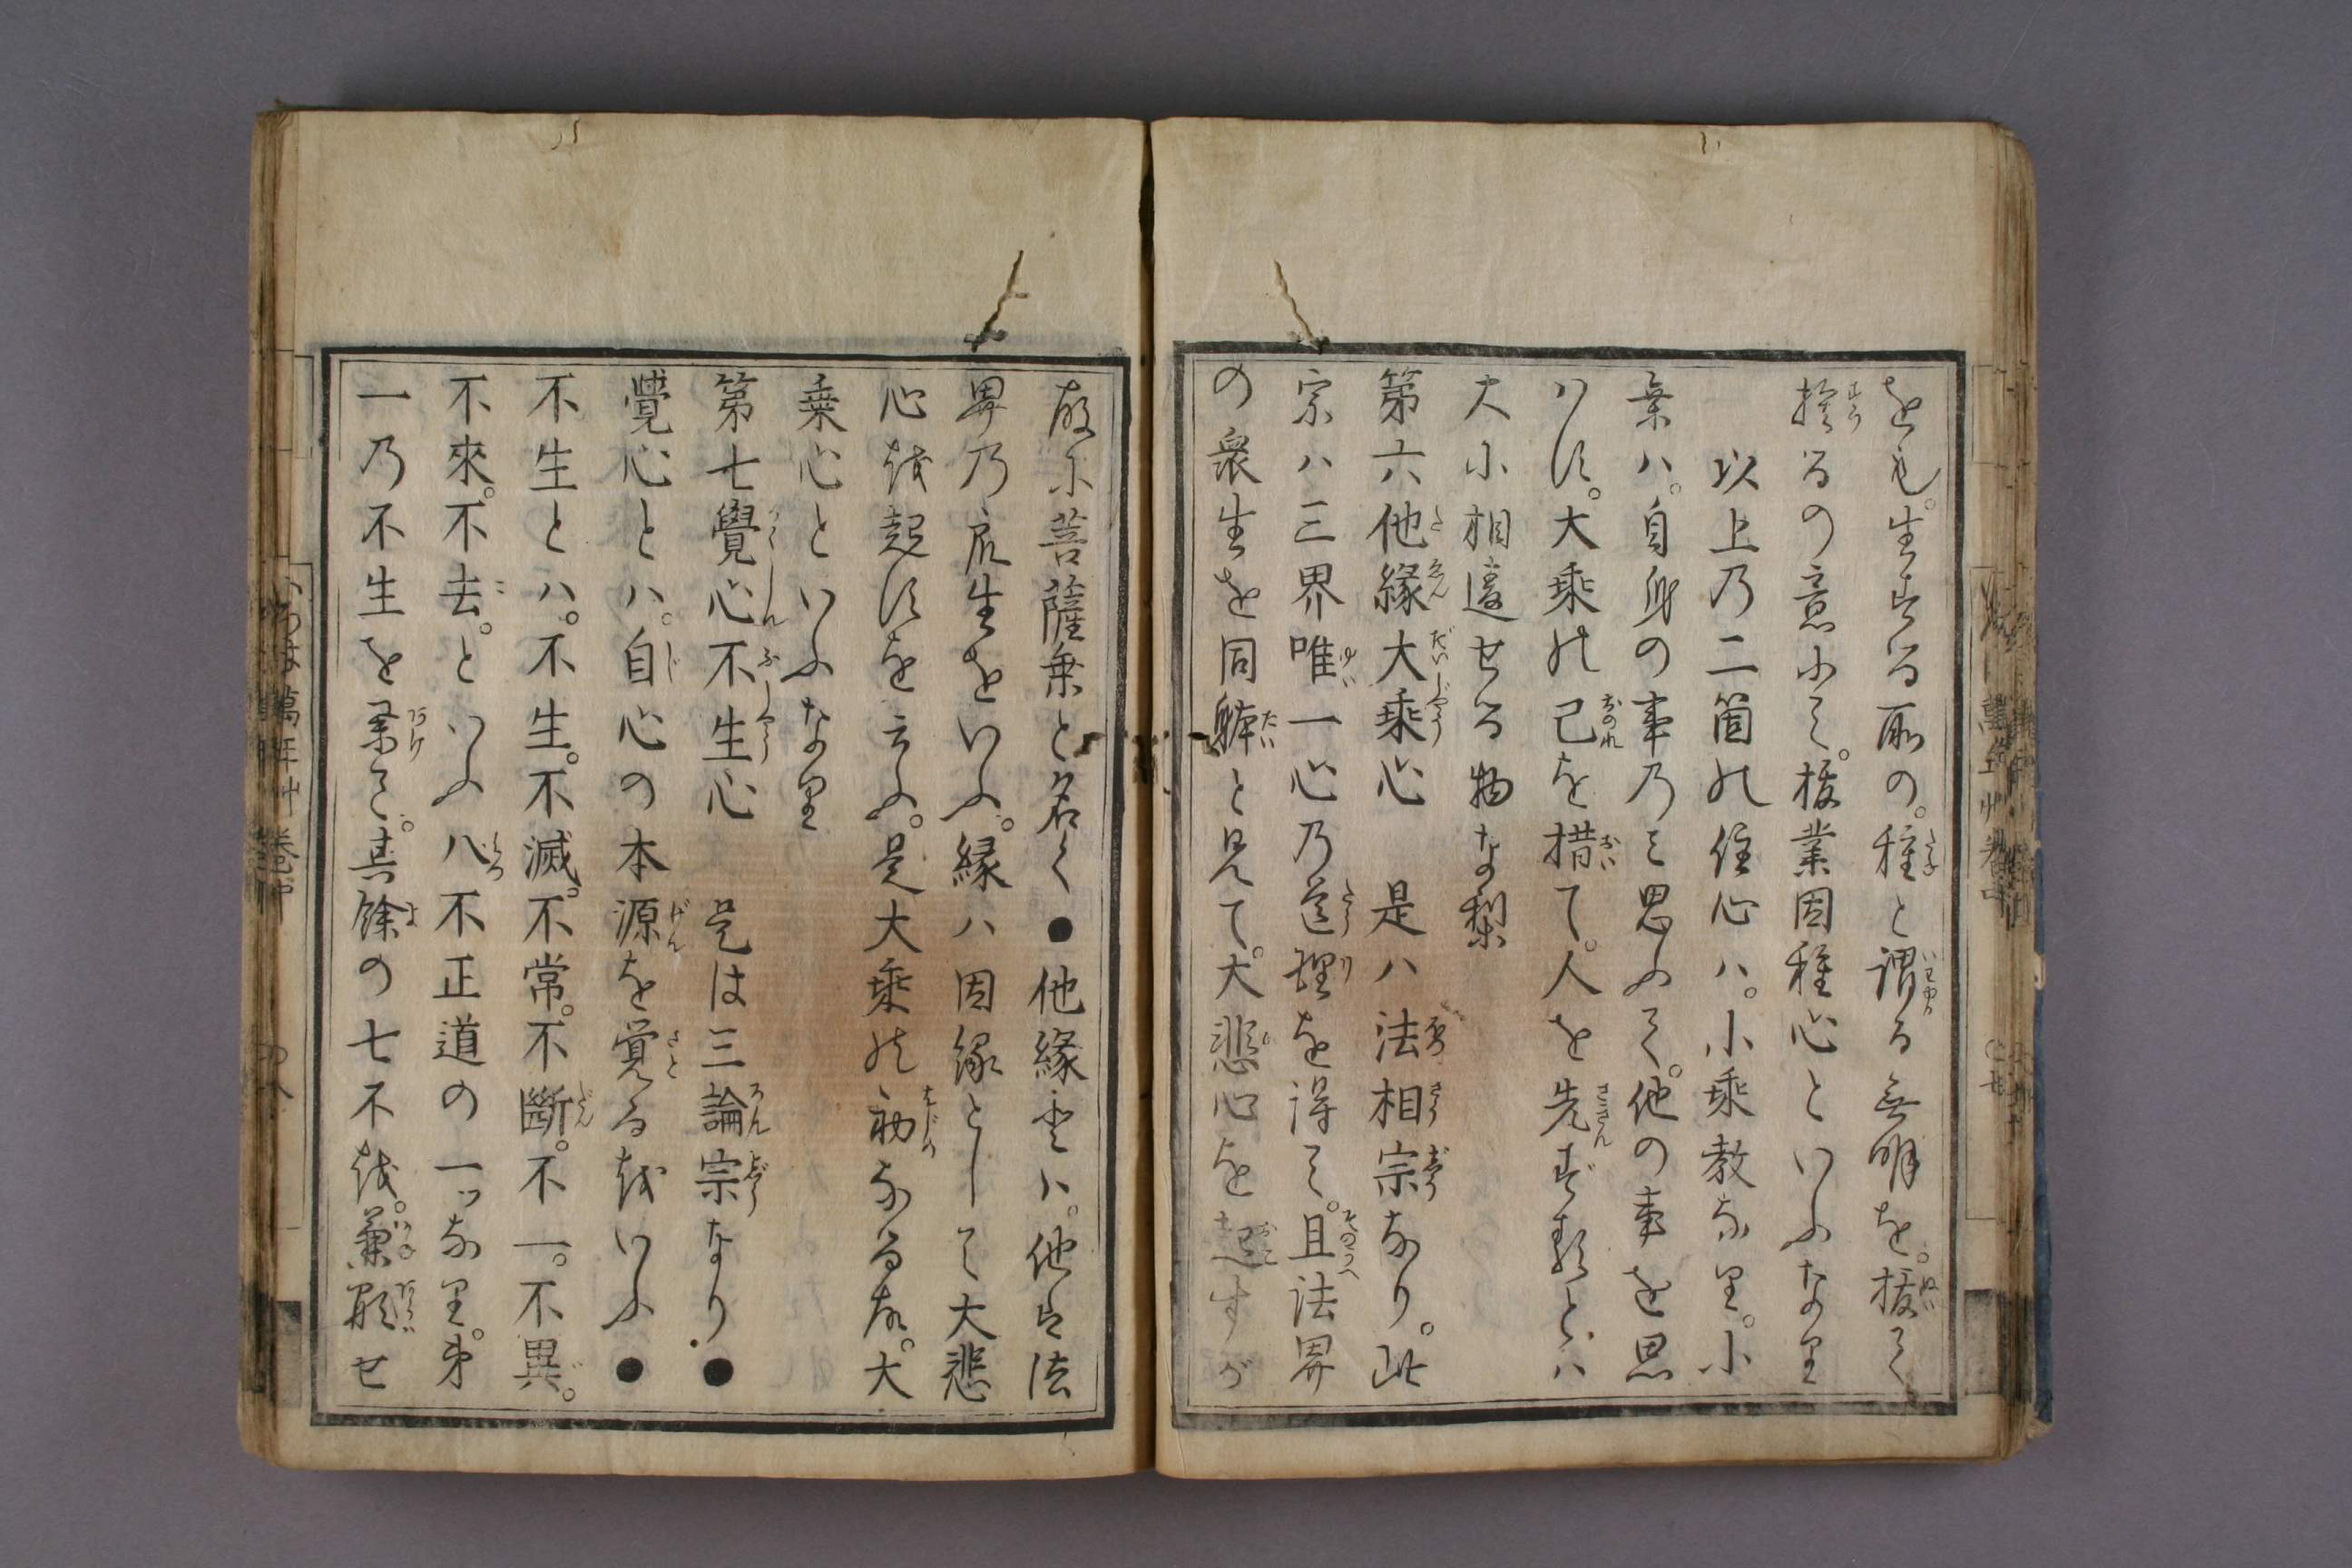 をも。生ずる所の。種と謂る無明を。抜て
捨るの意にて。抜業因種心といふなり
以上の二箇の住心ハ。小乗教なり。小
乗ハ。自身の事のミ思ふて。他の事を思
ハず。大乗の己を措て。人を先ず救とハ
大小相違せる物なり
第六他縁大乗心　是ハ法相宗なり。此
宗ハ三界唯一心の道理を得て。且法界
の衆生を同躰と見て。大悲心を起すが
故に菩薩乗と名く●他縁とハ。他は法
界の衆生をいふ。縁ハ因縁として大悲
心を起すを云ふ。是大乗の初なる故。大
乗心といふなり
第七覺心不生心　是は三論宗なり●
覺心とハ。自心の本源を覚るをいふ●
不生とハ。不生。不滅。不常。不斷。不一。不異。
不來。不去。といふ八不正道の一ッなり。第
一の不生を挙て。其餘の七不を。兼顕せ